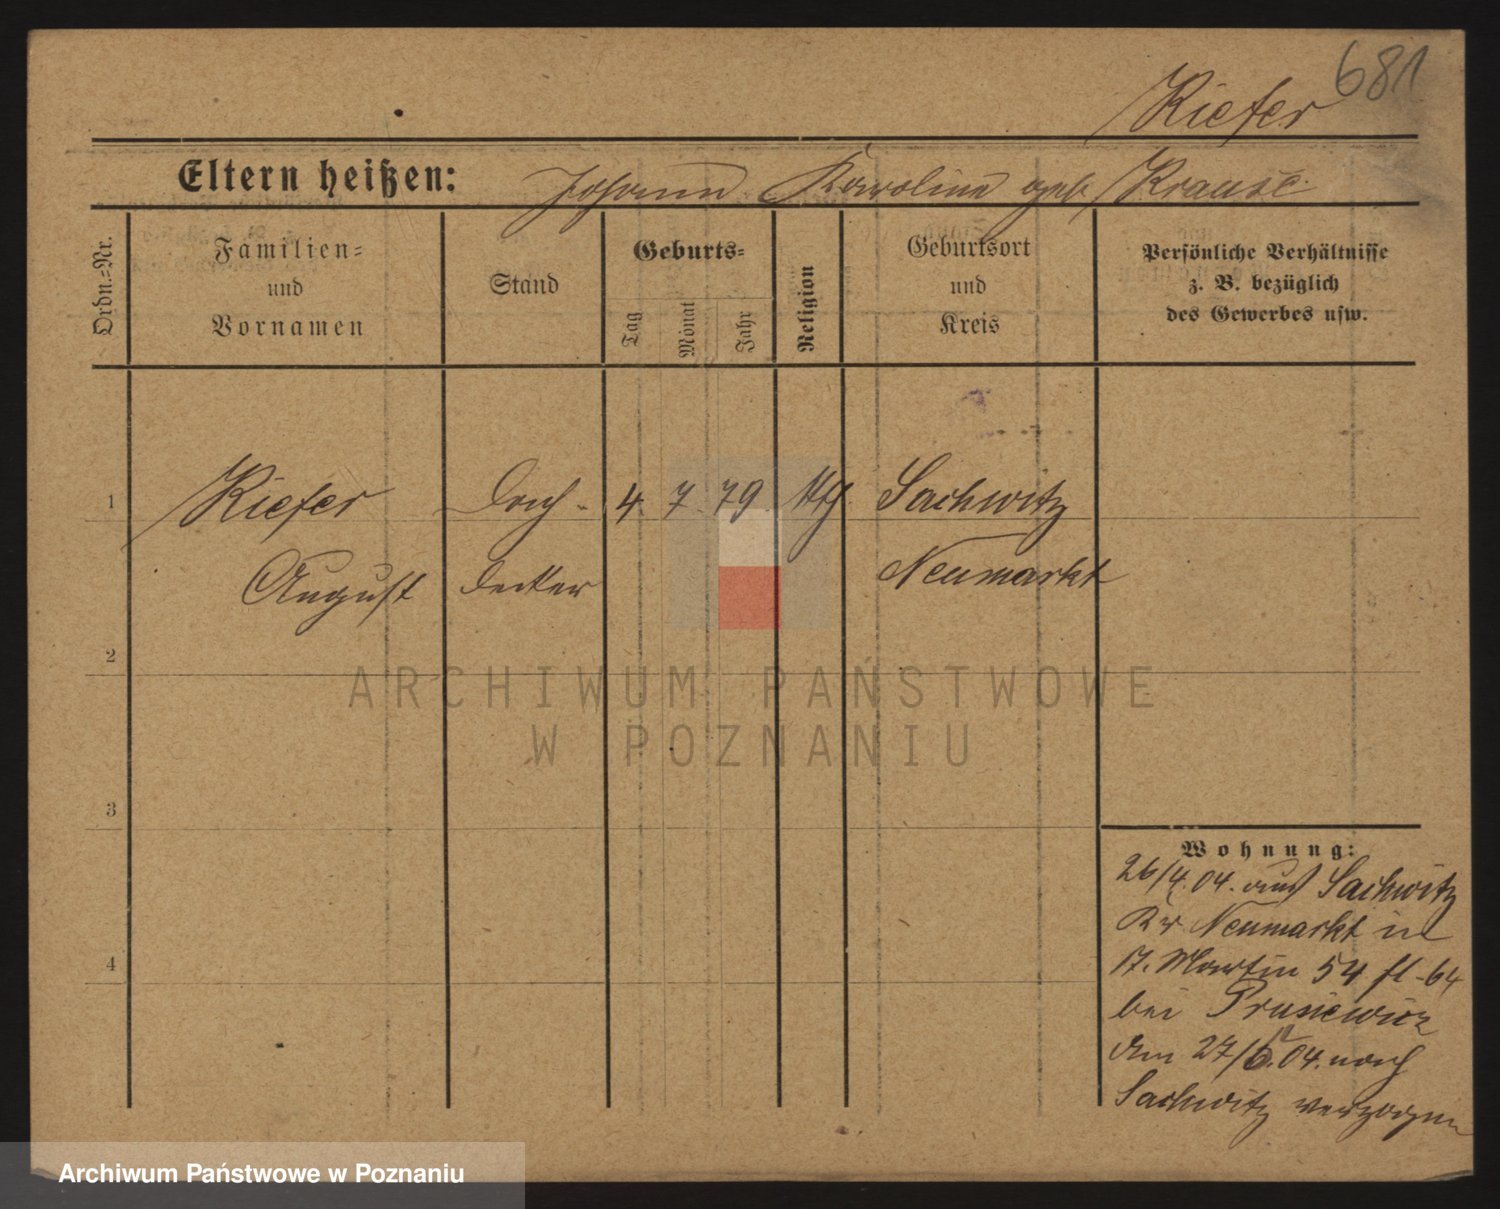 681
Kiefer
Eltern heißen: Johann Karoline geb Krause
Ordn.-Nr.
Familien- und Vornamen
Stand
Geburts-
Tag
Monat
Jahr
Religion
Geburtsort und Kreis
Persönliche Verhältnisse z. B. bezüglich des Gewerbes usw.
1 Kiefer Dach- 4 7 79 Sachwitz
August decker Neumarkt
2
3
4
Wohnung:
26/4. 04. aus Sachwitz
Kr Neumarkt in
Martin 54 fl-64
bei Prusiewicz
Am 27/5. 04. nach
Sachwitz verzogen
ARCHIWUM PAŃSTWOWE
W POZNANIU
Archiwum Państwowe w Poznaniu